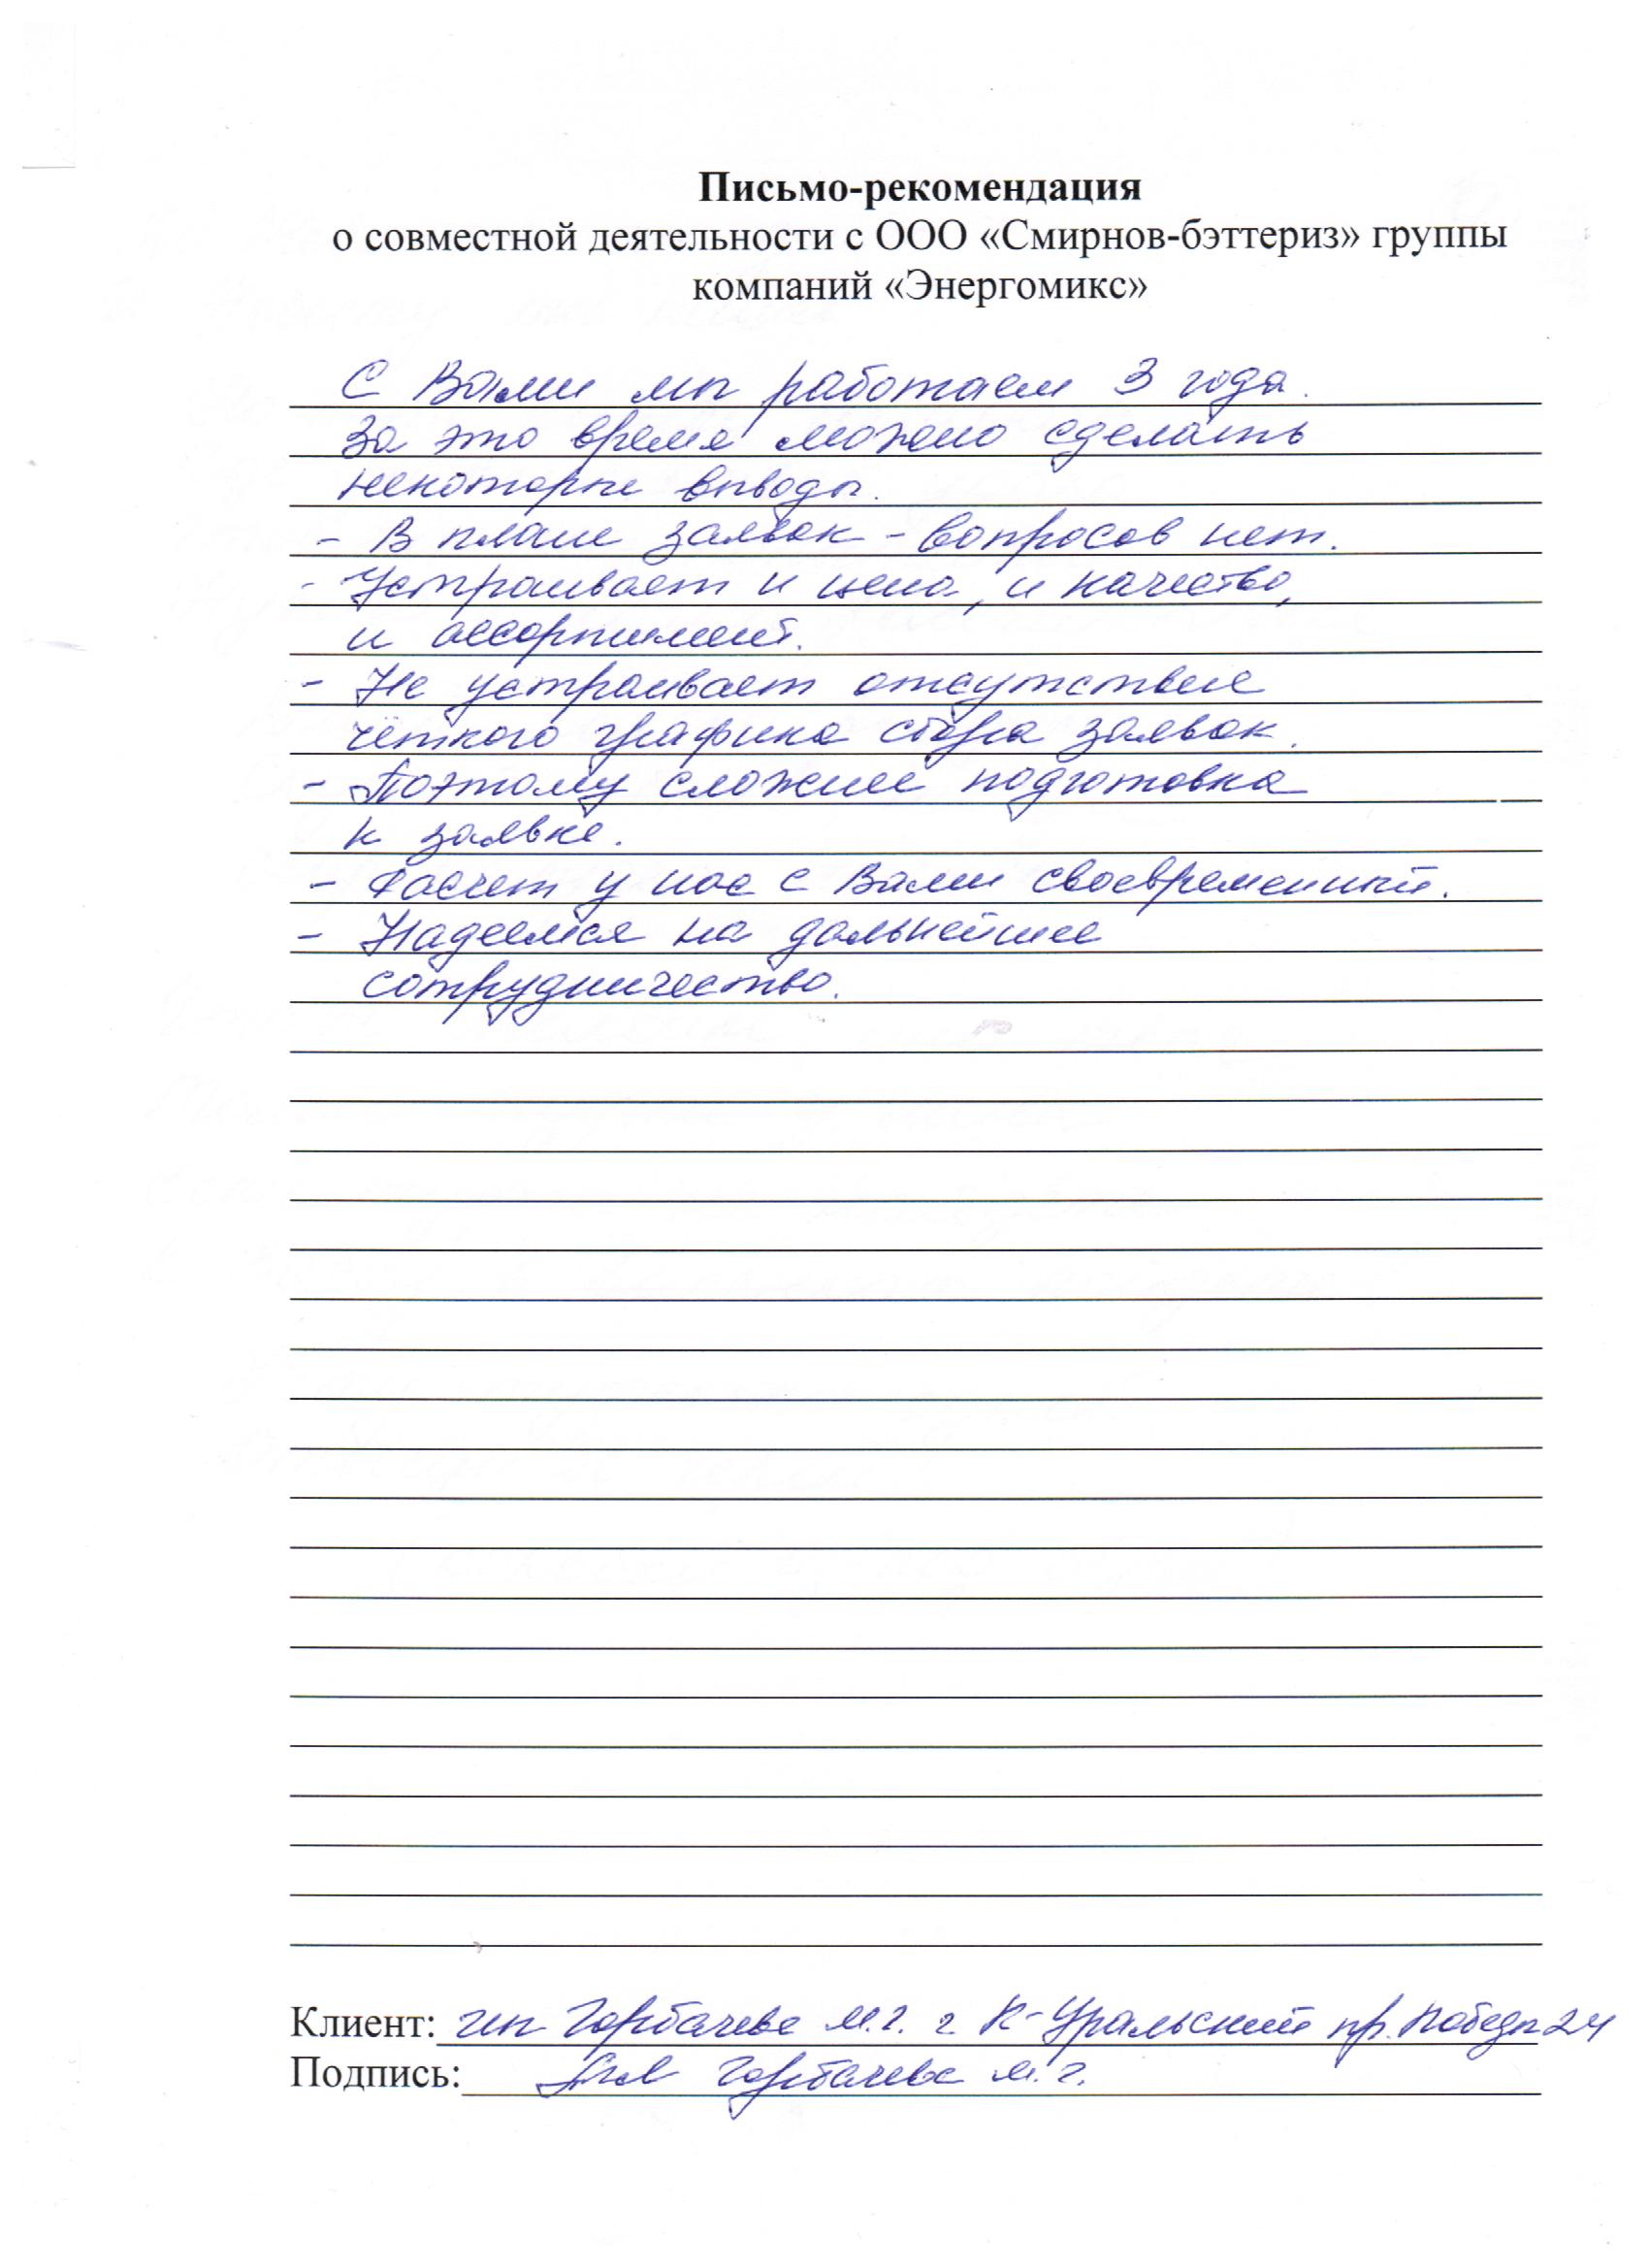 Письмо-рекомендация
о совместной деятельности с ООО «Смирнов-бэттериз» группы
компаний «Энергомикс»
С Вами мы работаем 3 года.
За это время можно сделать
некоторые выводы.
- В плане заявок - вопросов нет.
- Устраивает и цена, и качество,
и ассортимент.
- Не устраивает отсутствие
чёткого графика сбора заявок.
- Поэтому сложнее подготовка
к заявке.
- Расчет у нас с Вами своевременный.
- Надеемся на дальнейшее
сотрудничество.
Клиент: ип Горбачева М.Г. г. К-Уральский пр. Победы 24
Подпись: Горбачева М.Г.